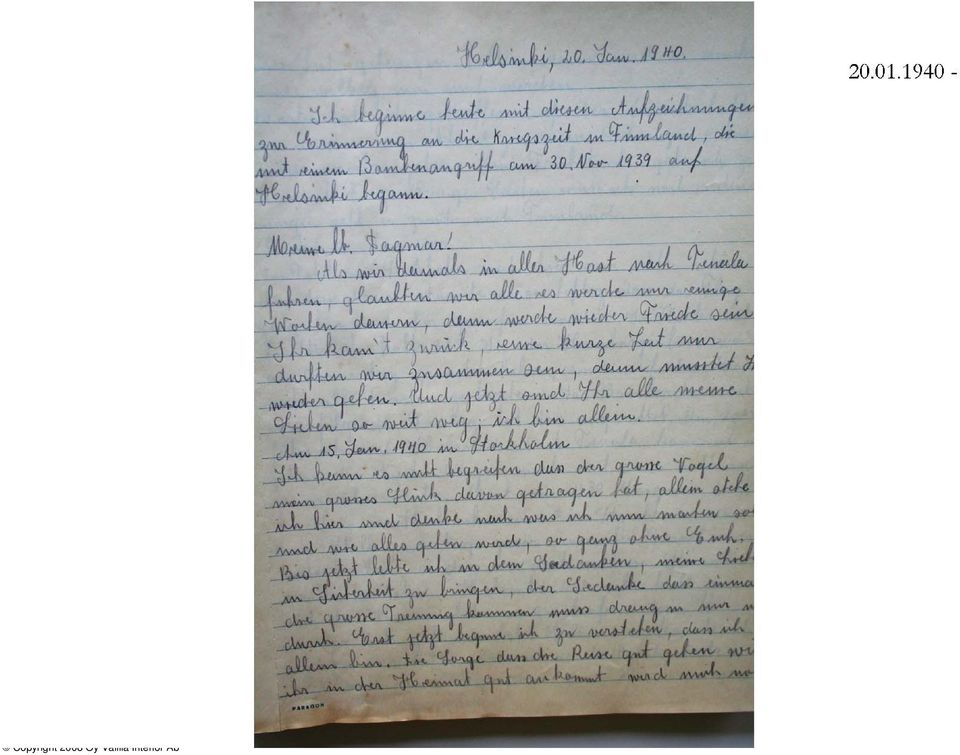 Helsinki, 20. Jan. 1940.
20.01.1940 -
Ich beginne heute mit diesen Aufzeichnungen
zur Erinnerung an die Kriegszeit in Finnland, die
mit einem Bombenangriff am 30. Nov 1939 auf
Helsinki begann.
Meine lb. Dagmar!
Als wir damals in aller Hast nach Tenala
fuhren, glaubten wir alle es werde nur einige
Wochen dauern, dann werde wieder Friede sein
Ihr kam't zurück, eine kurze Zeit nur
durften wir zusammen sein, dann musstet
wieder gehen. Und jetzt sind Ihr alle meine
Lieben so weit weg, ich bin allein.
Am 15. Jan. 1940 in Stockholm
Ich kann es nicht begreifen dass der grosse Vogel
mein grosses Glück davon getragen hat, allein stehe
ich hier und denke nach was ich nun machen so
und wie alles gehen wird, so ganz ohne Euch.
Bis jetzt lebte ich in dem Gedanken, meine
in Sicherheit zu bringen, der Gedanke dass einma
die grosse Trennung kommen muss drang in mir
durch. Erst jetzt beginne ich zu verstehen, dass ich
allein bin. Die Sorge dass die Reise gut gehen wi
ihr in der Heimat gut ankommt wird mich no
PARAGON
© Copyright 2008 Oy Vallila Interior Ab